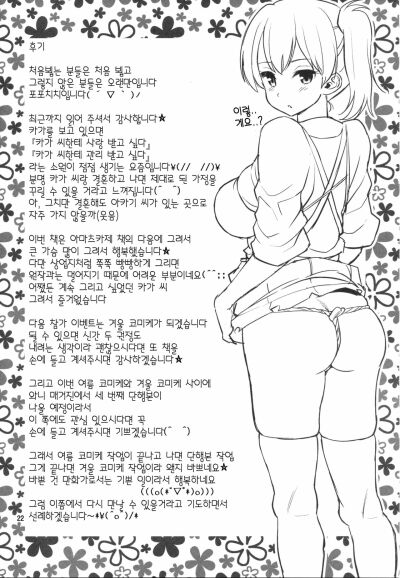 후기
처음뵙는 분들은 처음 뵙고
그렇지 않은 분들은 오랜만입니다
포포치치입니다( ´ ∇ ` )ﾉ
최근까지 읽어 주셔서 감사합니다★
카가를 보고 있으면
『카가 씨한테 사랑 받고 싶다』
『카가 씨한테 관리 받고 싶다』
라는 소원이 점점 생기는 요즘입니다\(// //)\
분명 카가 씨랑 결혼하고 나면 제대로 된 가정을
꾸릴 수 있을 거라고 느껴집니다(^ ^)
아, 그치만 결혼해도 아카기 씨가 있는 곳으로
자주 가지 않을까(웃음)
이번 책은 아마츠카제 책의 다음에 그려서
큰 가슴 많이 그려서 행복했습니다★
다만 상업지처럼 쭉쭉 빵빵하게 그리면
원작과는 멀어지기 때문에 어려운 부분이네요(^^;;
어쨌든 계속 그리고 싶었던 카가 씨
그려서 즐거웠습니다
다음 참가 이벤트는 겨울 코미케가 되겠습니다
될 수 있으면 신간 두 권정도
내려는 생각이라 괜찮으시다면 또 책을
손에 들고 계셔주시면 감사하겠습니다★
그리고 이번 여름 코미케와 겨울 코미케 사이에
와니 매거진에서 세 번째 단행본이
나올 예정이라서
이 쪽에도 관심 있으시다면 꼭
손에 들고 계셔주시면 기쁘겠습니다(^ ^)
그래서 여름 코미케 작업이 끝나고 나면 단행본 작업
그게 끝나면 겨울 코미케 작업이라 왠지 바쁘네요★
바쁜 건 만화가로서는 기쁜 일이라서 행복하네요
(((o(*ﾟ▽ﾟ*)o)))
그럼 이쪽에서 다시 만날 수 있을거라고 기도하면서
실례하겠습니다~*¥(^o^)/*
이렇..
게요..?
22